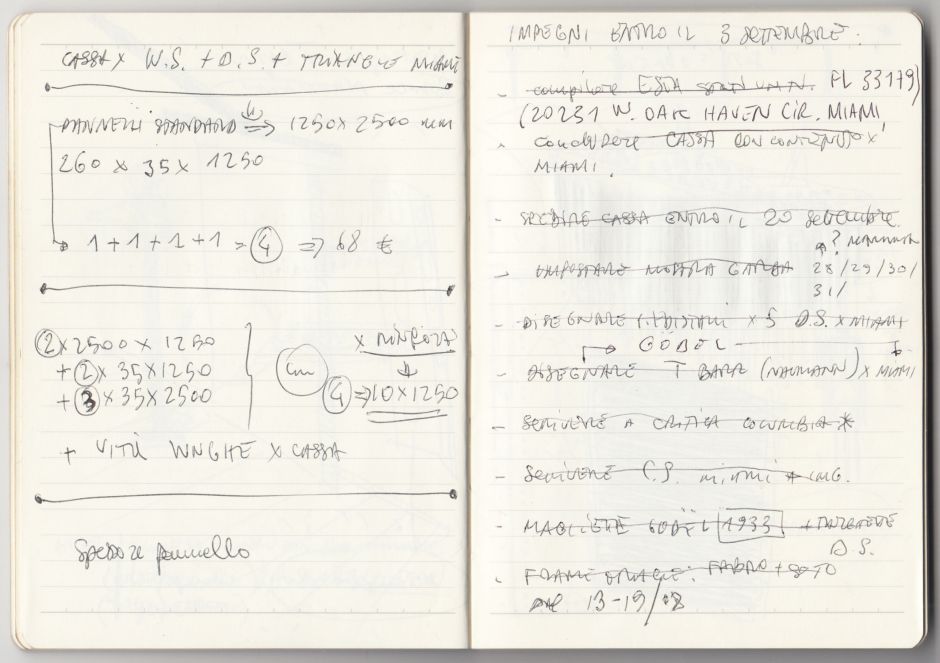 CASSA X W.S. + D.S. + TRIANGLE MIAMI
PANNELLI STANDARD ⇒ 1250 X 2500 mm
260 X 35 X 1250
1 + 1 + 1 + 1 = 4 ⇒ 68 €
2 X 2500 X 1250
+ 2 X 35 X 1250
+ 3 X 35 X 2500
cm
X RINFORZI
4 ⇒ 10 X 1250
+ VITI LUNGHE X CASSA
Spessore pannello
IMPEGNI ENTRO IL 3 SETTEMBRE:
- compilare ESTA FL 33179)
(20231 W. OAK HAVEN CIR. MIAMI
- concludere CASSA CON CONTENUTO X
MIAMI.
- SPEDIRE CASSA ENTRO IL 20 settembre.
?
- IMPOSTARE MOSTRA 28/29/30/
31/
- DISEGNARE PIEDISTALLI X 5 D.S. X MIAMI
GÖDEL
- DISEGNARE T BARR (NAUMANN) X MIAMI
- SCRIVERE A CRITICA COLUMBIA *
- SCRIVERE C.S. MIAMI + IMG.
- MAGLIETTE GÖDEL 1933 + D.S.
- FRAME FABRO + SOTO
13-19/08